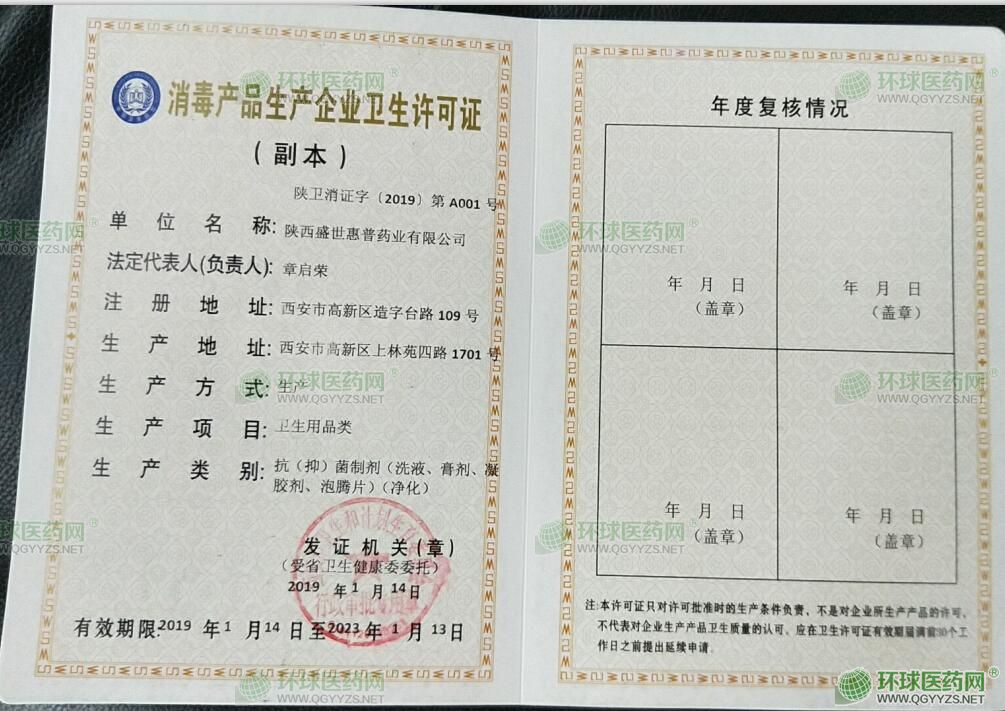 消毒产品生产企业卫生许可证
(副本)
陕卫消证字〔2019〕第 A001 号
单位名称: 陕西盛世惠普药业有限公司
法定代表人(负责人): 章启荣
注册地址: 西安市高新区造字台路 109 号
生产地址: 西安市高新区上林苑四路 1701 号
生产方式: 生产
生产项目: 卫生用品类
生产类别: 抗(抑)菌制剂(洗液、膏剂、凝
胶剂、泡腾片)(净化)
发证机关(章)
(受省卫生健康委委托)
2019 年 1 月 14 日
行政审批专用章
有效期限: 2019 年 1 月 14 日至 2023 年 1 月 13 日
年度复核情况
年 月 日
(盖章)
年 月 日
(盖章)
年 月 日
(盖章)
年 月 日
(盖章)
注:本许可证只对许可批准时的生产条件负责,不是对企业所生产产品的许可、
不代表对企业生产产品卫生质量的认可、应在卫生许可证有效期届满前30个工
作日之前提出延续申请.
环球医药网®
WWW.QGYYZS.NET